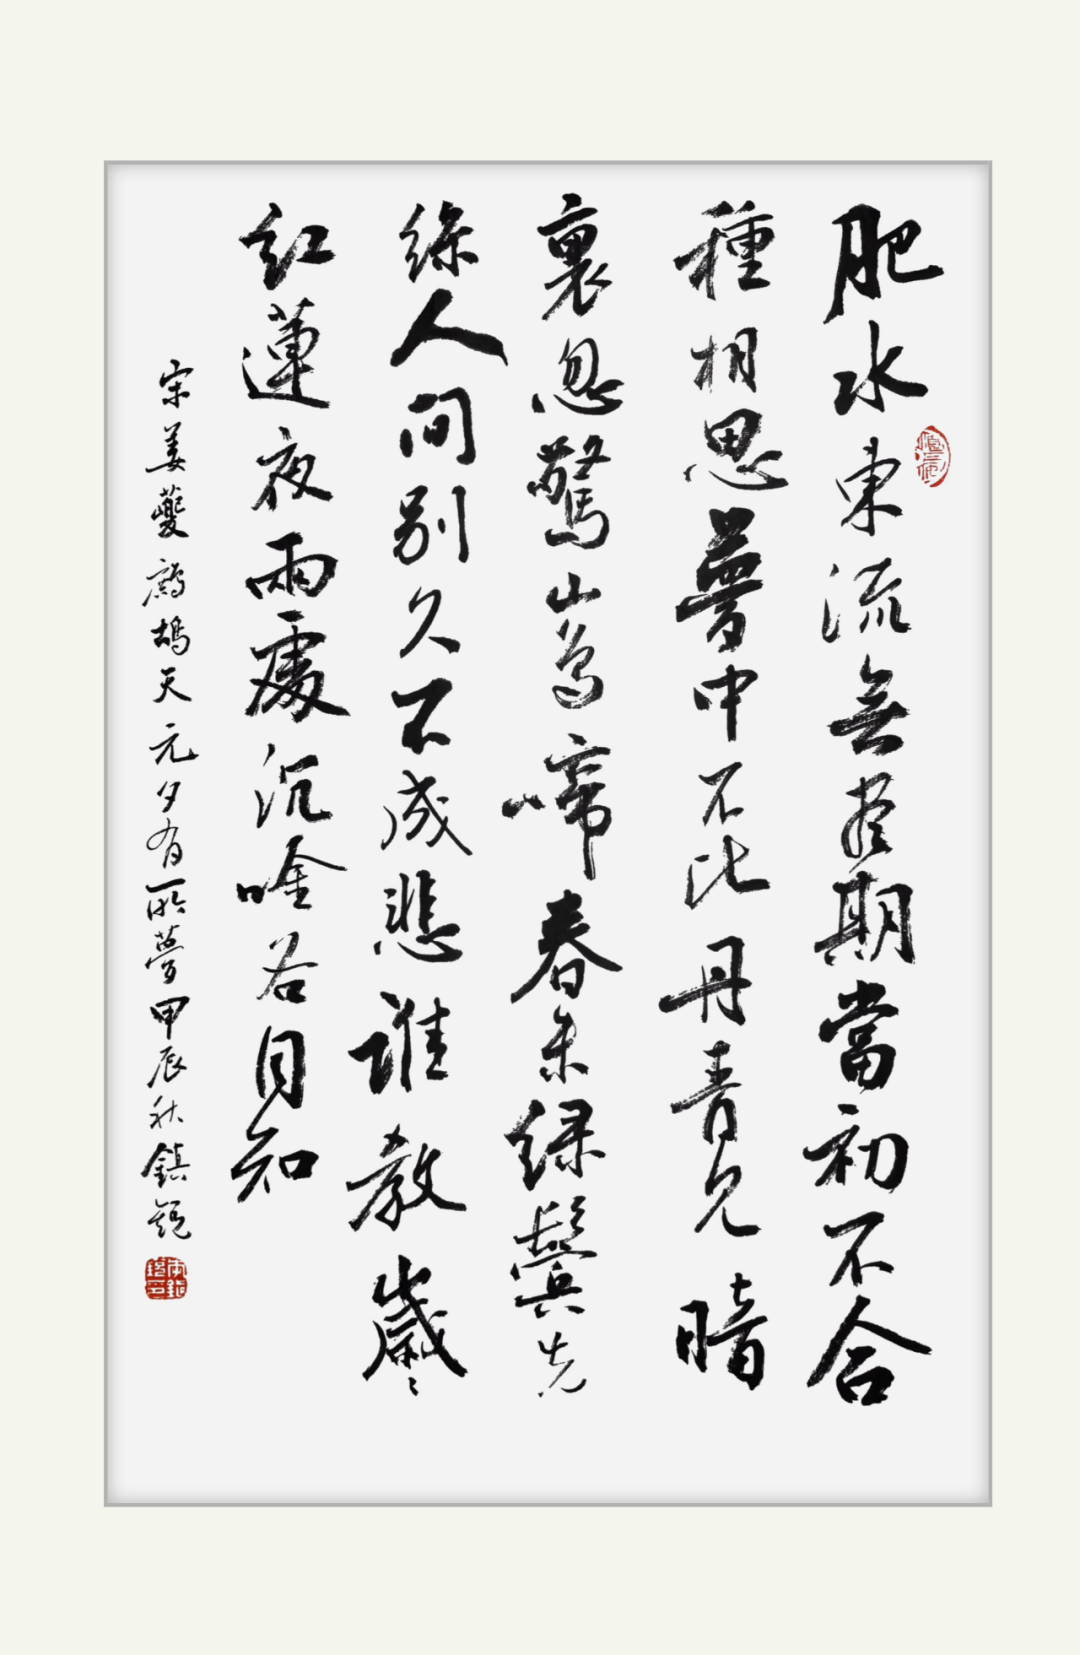 肥水東流無盡期當初不合
種相思夢中不比丹青見暗
裏忽驚山鳥啼春未綠鬢先
絲人間別久不成悲誰教歲々
紅蓮夜兩處沉唫各自知
宋姜夔鷓鴣天元夕有所夢甲辰秋鎮